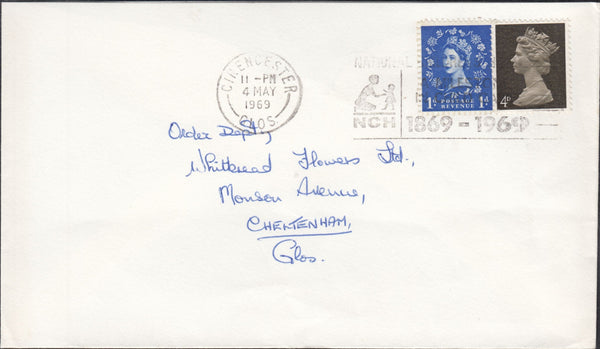 CIRENCESTER
11 - PM
4 MAY
1969
GLOS.
NATIONAL
NCH
1869 - 1969
1D POSTAGE REVENUE 1D
4D
Order Dept,
Whitbread Flowers Ltd.,
Monson Avenue,
CHELTENHAM,
Glos.